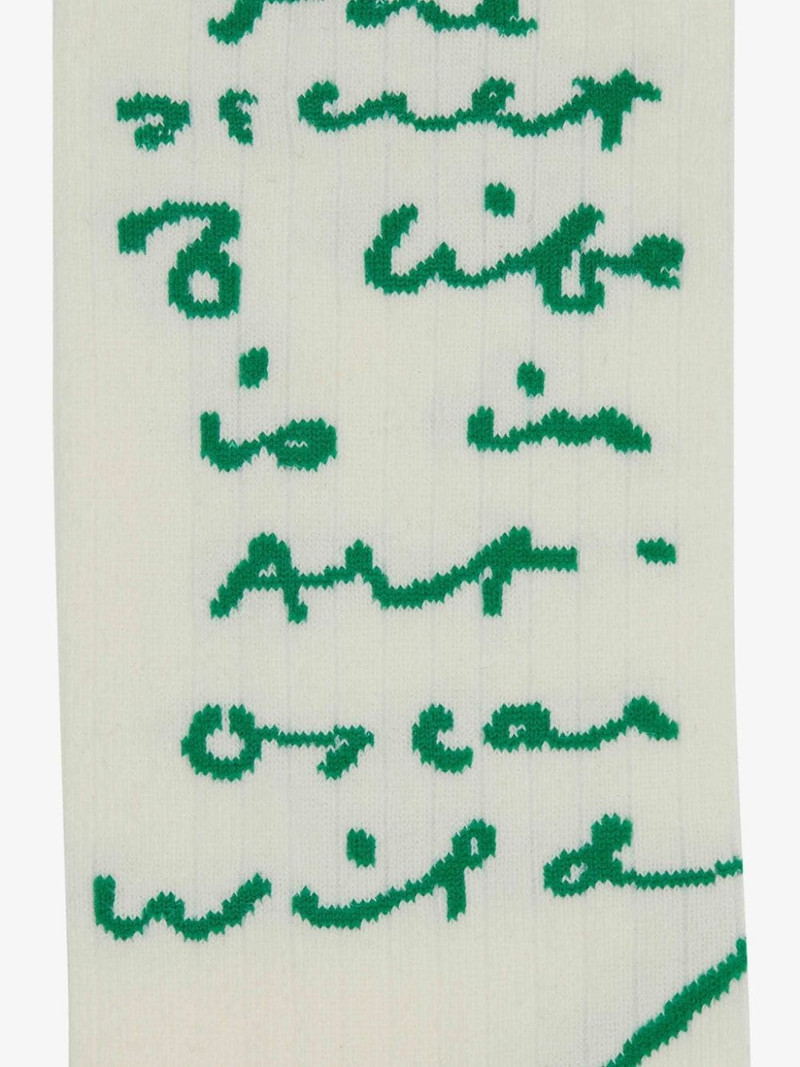 secret
of life
is in
Art.
oscar
wild